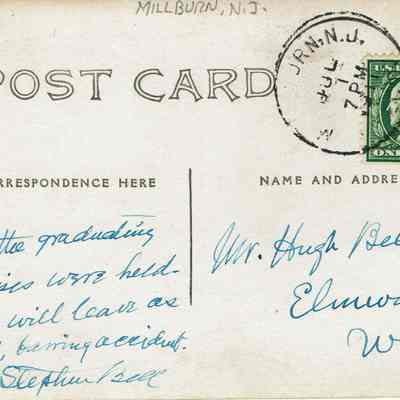 MILLBURN, N.J.
POST CARD
URN.N.J.
JUL
1
7 PM
RRESPONDENCE HERE
NAME AND ADDRE
the graduating
ises were held.
will leave as
, barring accident.
Stephen Bell
Mr. Hugh Bel
Elmwo
W